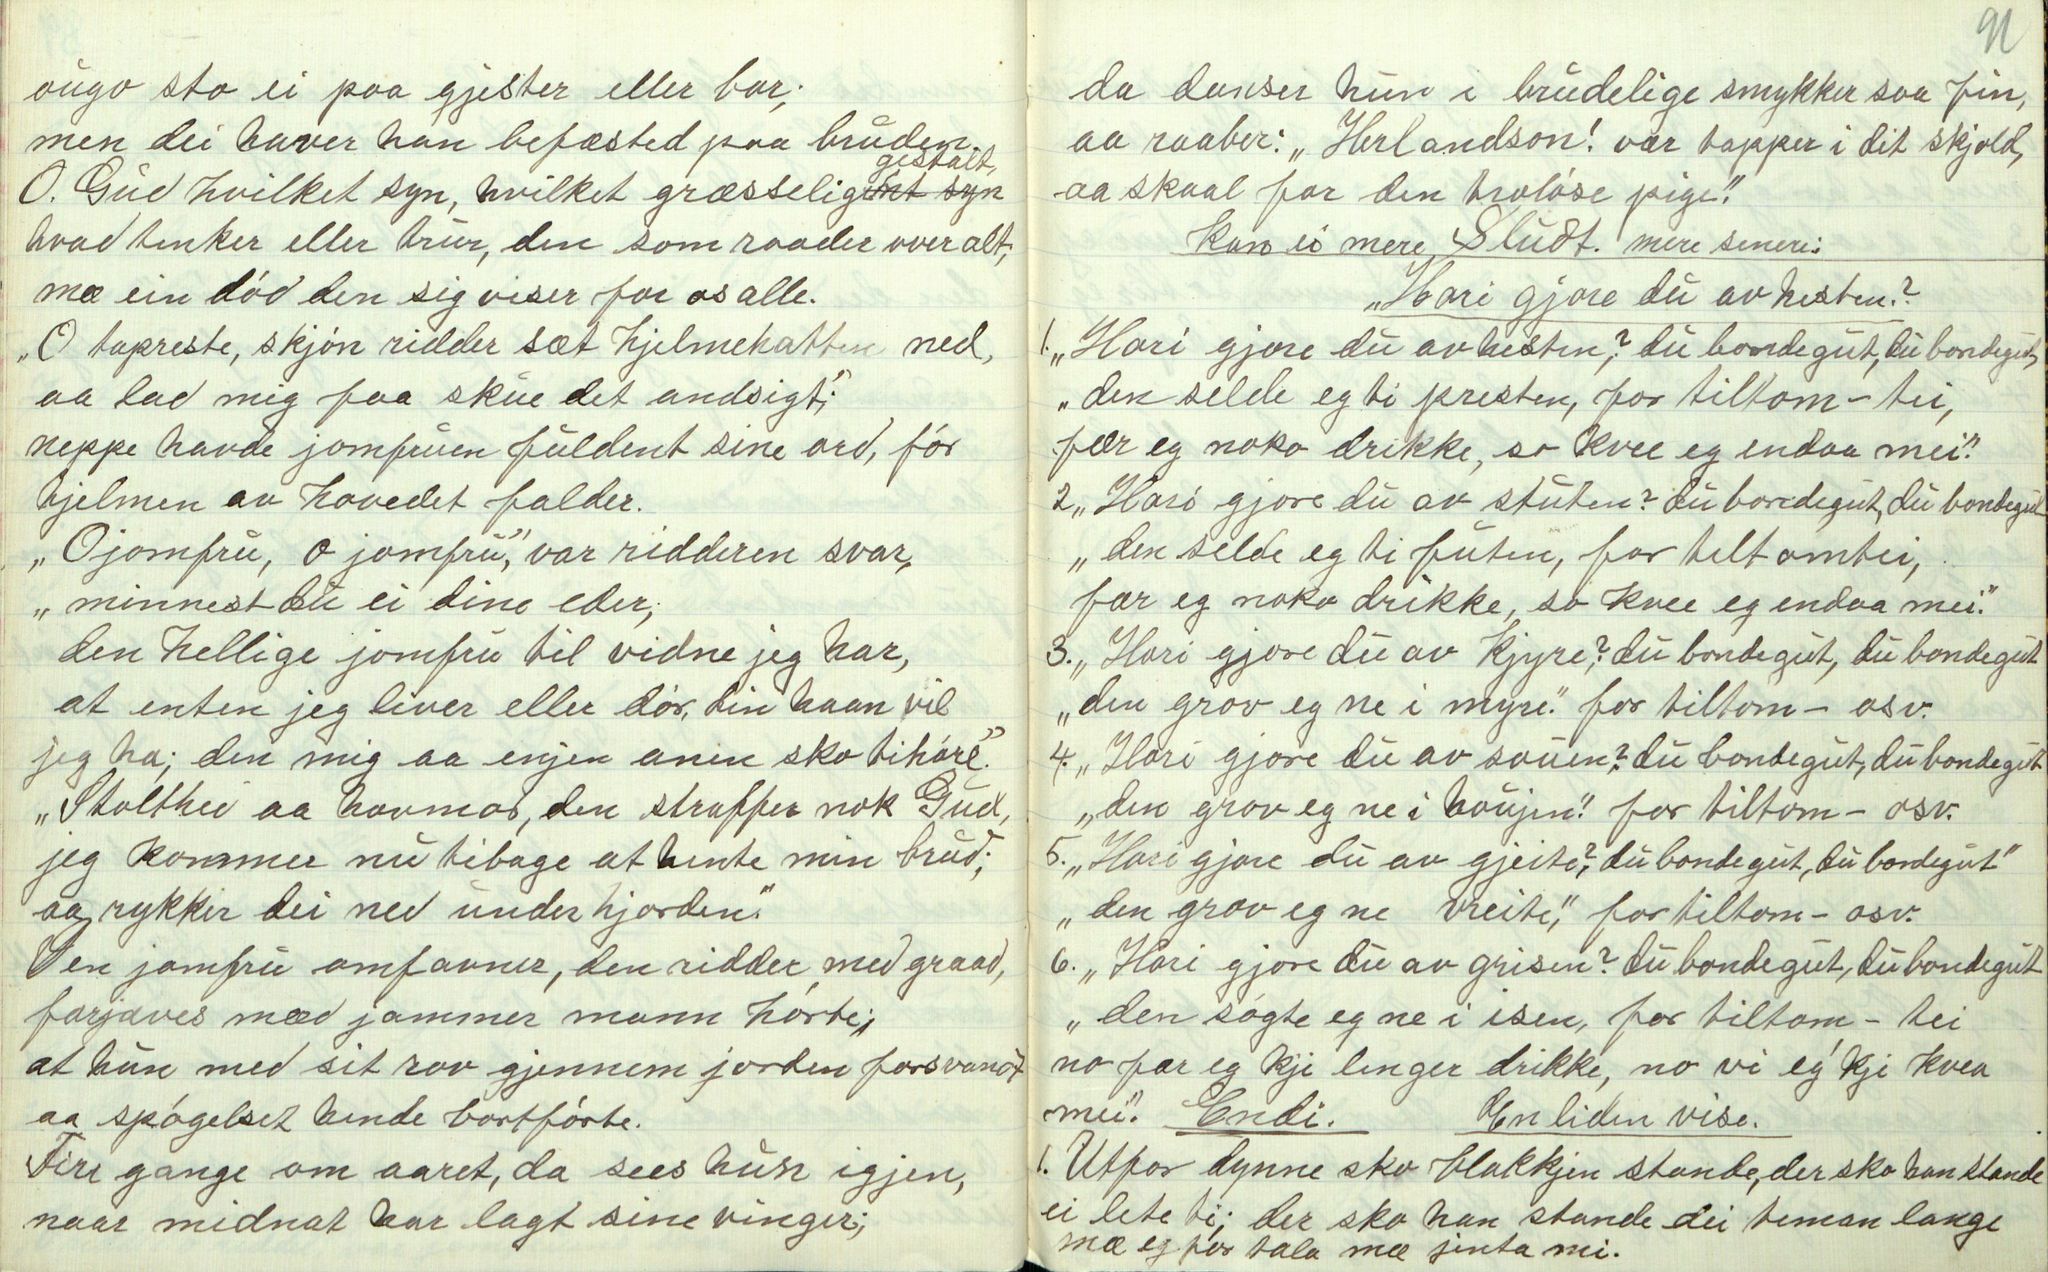 ougo sto ei paa gjester eller bor;
men dei haver han befæsted paa bruden.
gestalt,
O. Gud hvilket syn, hvilket græsselig syn
hvad tenker eller trur, den som raader over alt;
mæ ein dód den sig viser for os alle.
„O tapreste, skjön ridder sæt hjelmehatten ned,
aa lad mig faa skue det andsigt;"
neppe havde jomfruen fuldent sine ord, för
hjelmen av hovedet falder.
„O jomfru, o jomfru", var ridderen svar,
„minnest du ei dine eder;
den hellige jomfru til vidne jeg har,
at enten jeg liver eller dör, din haan vil
jeg ha; den mig aa enjen anen sko tihöre."
„Stolthei aa hovmod, den straffer nok Gud,
jeg kommer nu tibage at hente min brud;
aa rykker dei ned under hjorden."
Den jomfru omfavner, den ridder med graad,
forjaves mæd jammer mann hörte;
at hun med sit rov gjennem jorden forsvandt
aa spögelset hende bortförte.
Fire gange om aaret, da sees hun igjen,
naar midnat har lagt sine vinger;
91
da danser hun i brudelige smykker saa fin,
aa raaber: „Herlandson! vær tapper i dit skjold,
aa skaal for den trolöse pige."
Kan ei mere Sludt. mere senere:
„Hori gjore du av hesten?
1. „Hori gjore du av hesten,? du bondegut, du bondegut,
„den selde eg ti presten, for tiltom - tei,
fær eg noko drikke, so kvee eg endaa mei."
2. „Hori gjore du av stuten? du bondegut, du bondegut
„den selde eg ti futen, for telt omtei,
fær eg noko drikke, so kvee eg endaa mei."
3. „Hori gjore du av kjyre,? du bondegut, du bondegut
„den grov eg ne i myre." for tiltom - osv.
4. „Hori gjore du av souen,? du bondegut, du bondegut
„den grov eg ne i houjen." for tiltom - osv.
5. „Hori gjore du av gjeite,? du bondegut, du bondegut"
„den grov eg ne vreite," for tiltom - osv.
6. „Hori gjore du av grisen? du bondegut, du bondegut
„den sögte eg ne i isen, for tiltom - tei
no fær eg kji lenger drikke, no vi eg kji kvea
mei". Endi. En liden vise.
1. Utfor dynne sko blakkjen stande, der sko han stande
ei lete ti; der sko han stande dei teman lange
mæ eg för tala mæ jinta mi.